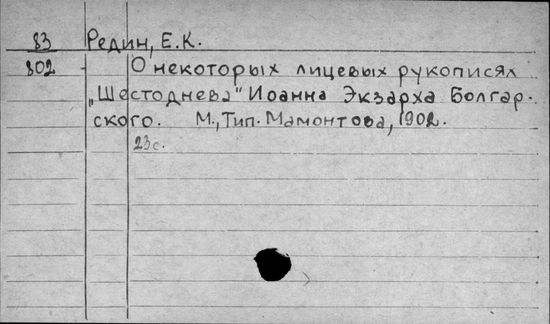 83 Редин, Е.К.
802 О некоторых лицевых рукописях
„Шестоднева" Иоанна Экзарха Болгар-
ского. М., Тип. Мамонтова, 1902.
23с.